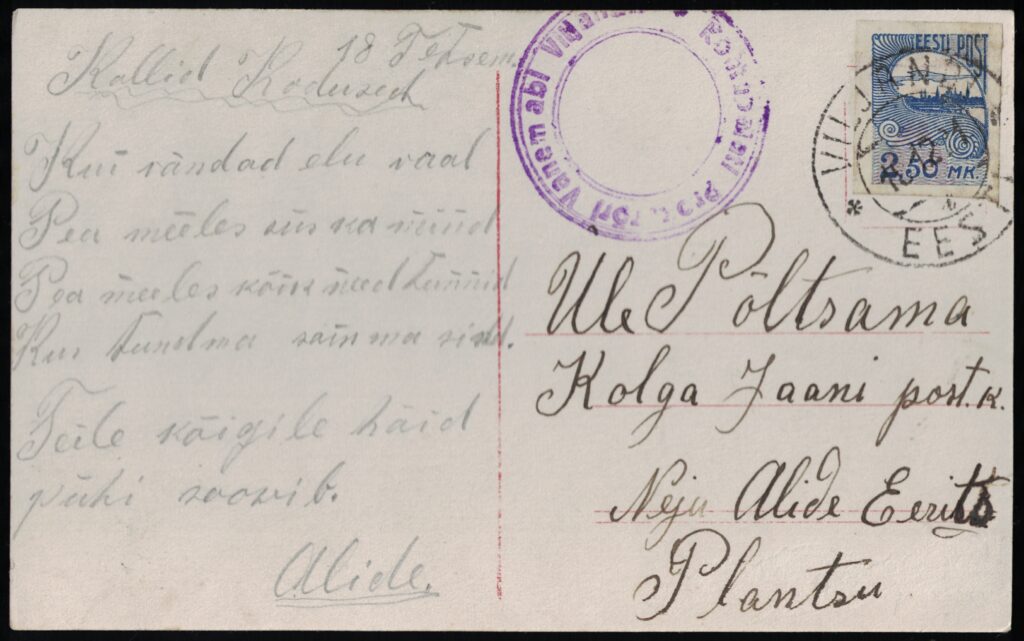 18 Detsem.
Kallid Kodused
Kui rändad elu raal
Pea meeles siis ka mind
Pea meeles kõik need tunnid
Kus tundma sain ma sind.
Teile kõigile häid
pühi soovib.
Alide.
Vanem abi
EESTI POST
2,50 MK
VILJAN
EES
Üle Põltsama
Kolga Jaani post. k.
Neju Alide Eerits
Plantsu